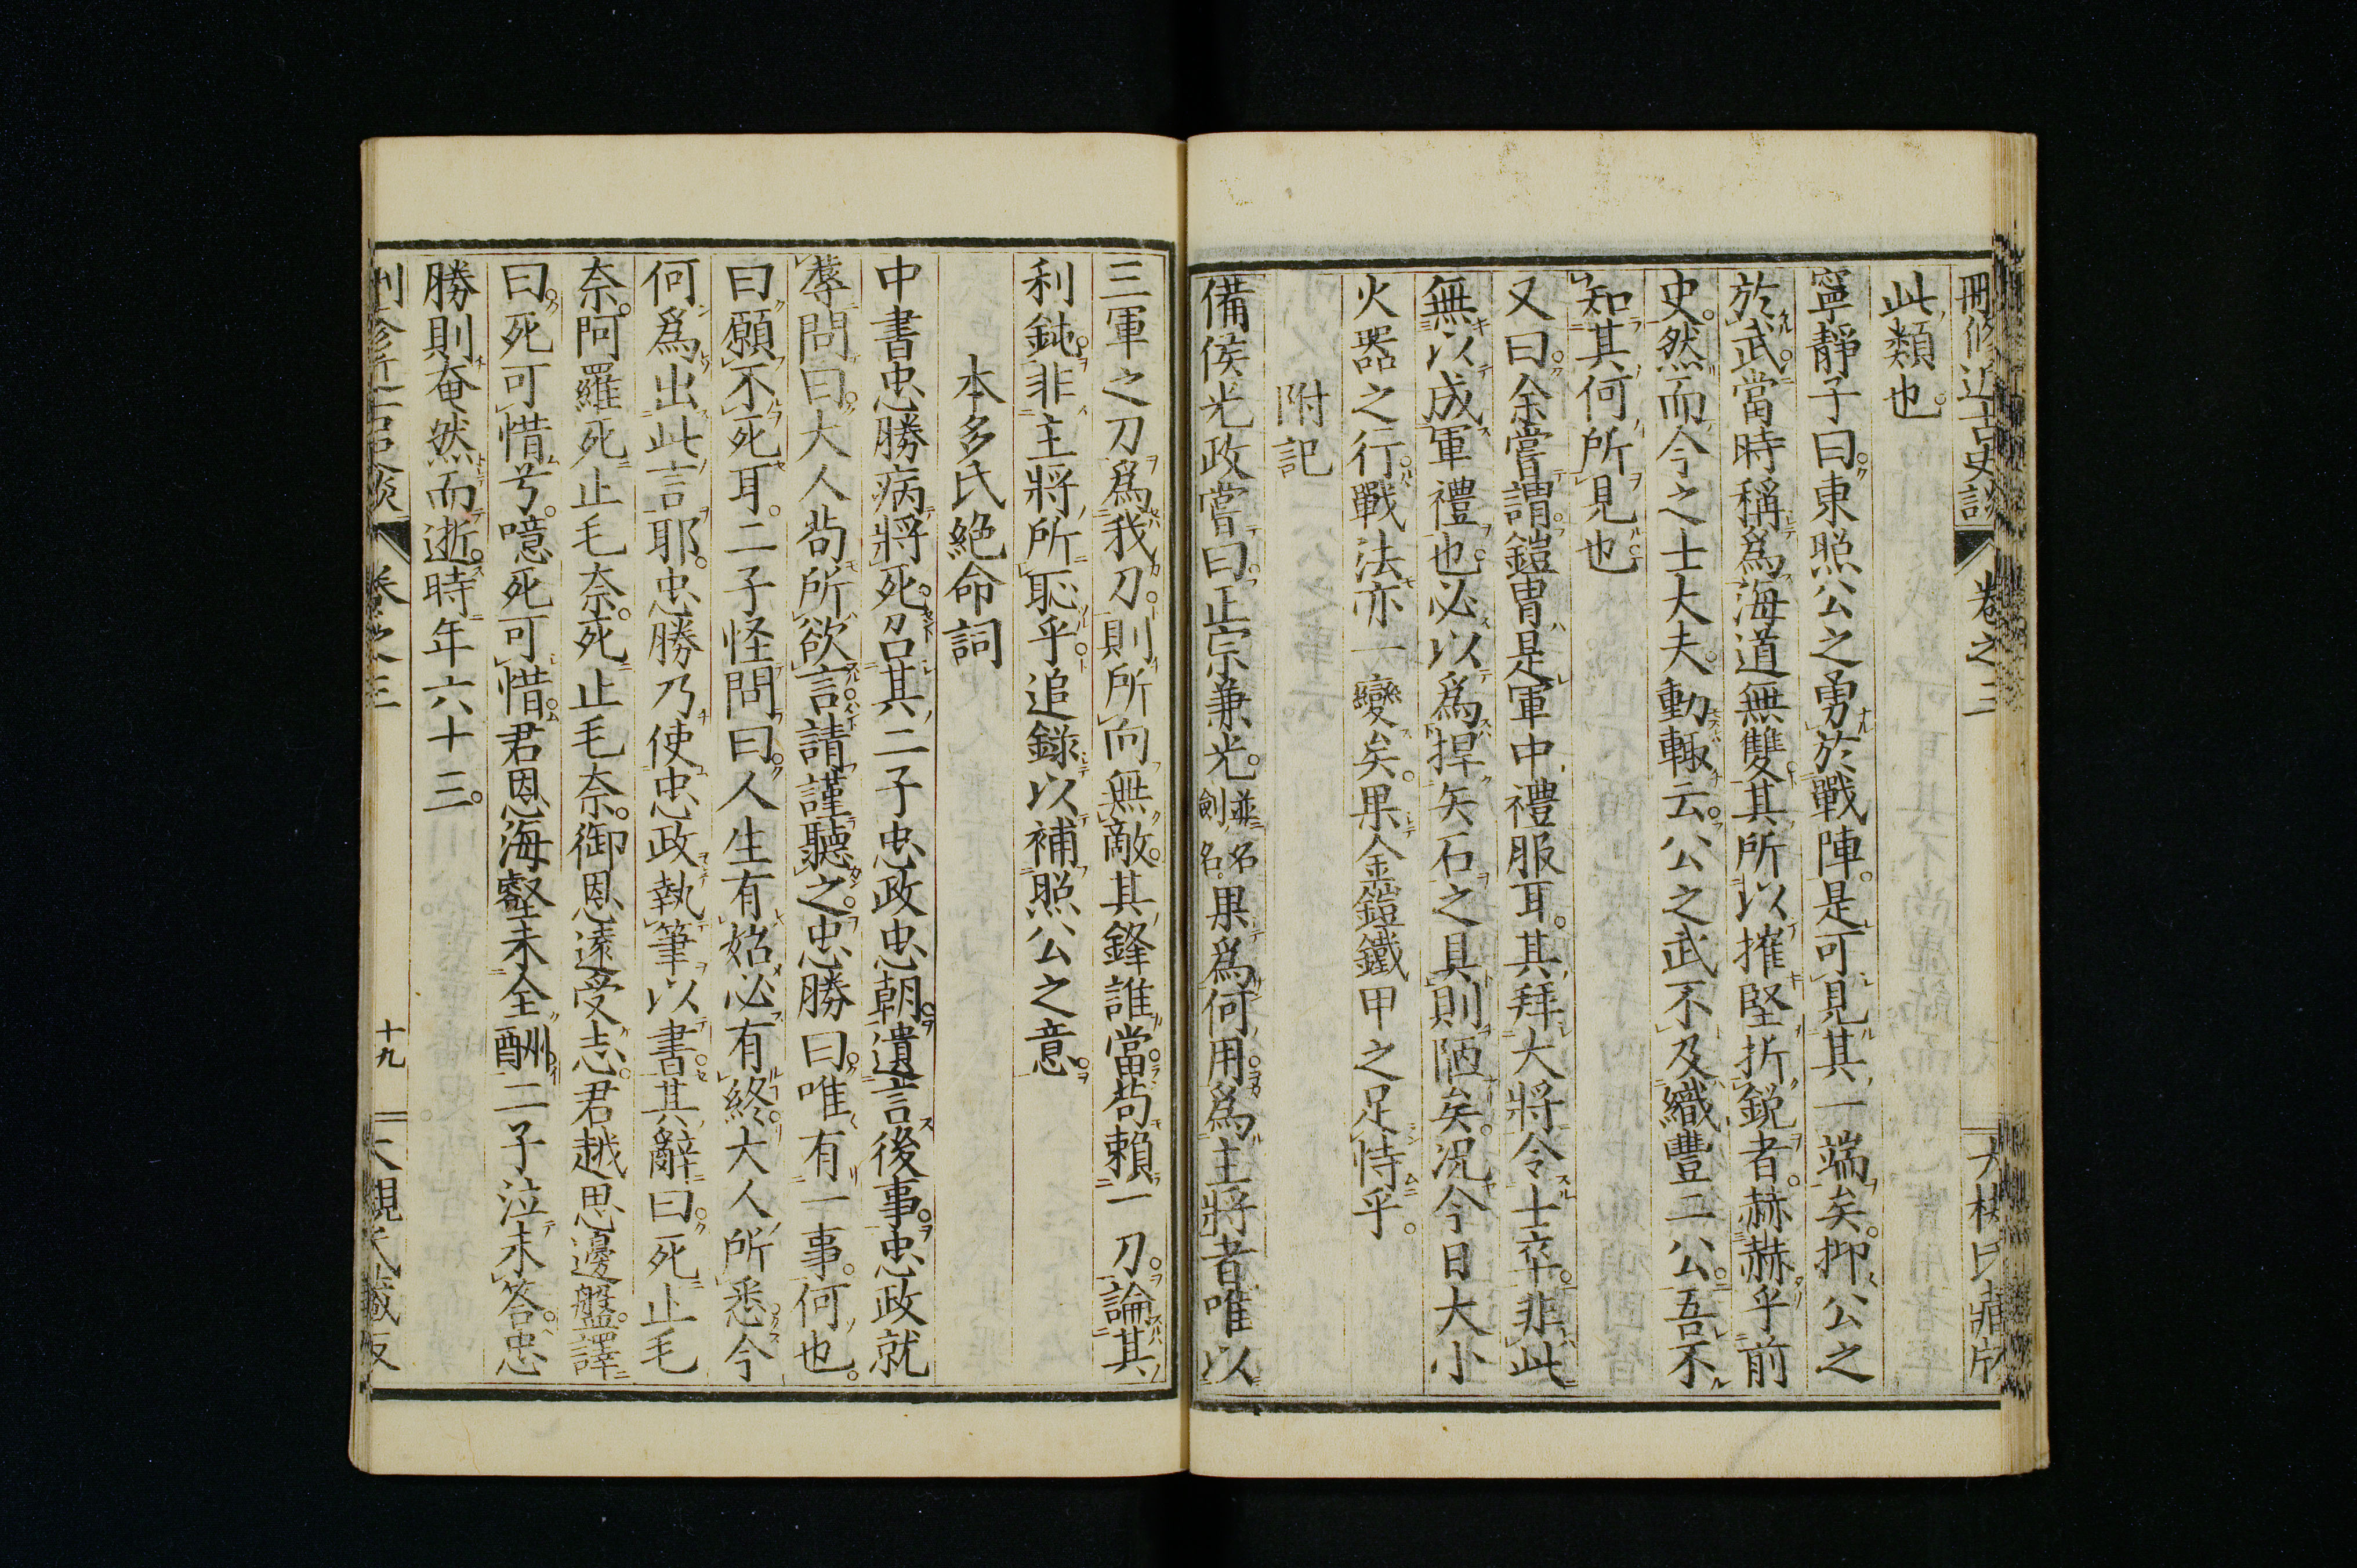 刪修近古史談 卷之三 大槻氏藏版
此類也。
寧靜子曰。東照公之勇於戰陣。是可見其一端矣。抑公之
於武。當時稱爲海道無雙。其所以摧堅折鋭者。赫赫乎前
史。然而今之士大夫。動輙云。公之武不及織豐二公。吾不
知其何所見也
又曰。余嘗謂。鎧冑是軍中禮服耳。其拜大將令士卒。非此
無以成軍禮也。必以爲捍矢石之具。則陋矣。況今日大小
火器之行。戰法亦一變矣。果金鎧鐵甲之足恃乎。
附記
備侯光政嘗曰。正宗兼光。並名劍名。果爲何用。爲主將者。唯以
三軍之刀爲我刀。則所向無敵。其鋒誰當。苟賴一刀。論其
利鈍。非主將所恥乎。追錄以補照公之意。
本多氏絶命詞
中書忠勝病將死。召其二子忠政忠朝。遺言後事。忠政就
蓐問曰。大人苟所欲言。請謹聽之。忠勝曰。唯有一事。何也。
曰願不死耳。二子怪問曰。人生有始必有終。大人所悉。今
何爲出此言耶。忠勝乃使忠政執筆以書。其辭曰。死止毛
奈。阿羅死止毛奈。死止毛奈。御恩遠受志。君越思邊盤。譯
曰。死可惜兮。噫死可惜。君恩海壑未全酬。二子泣未答。忠
勝則奄然而逝。時年六十三。
刪修近古史談 卷之三 十九 大槻氏藏版